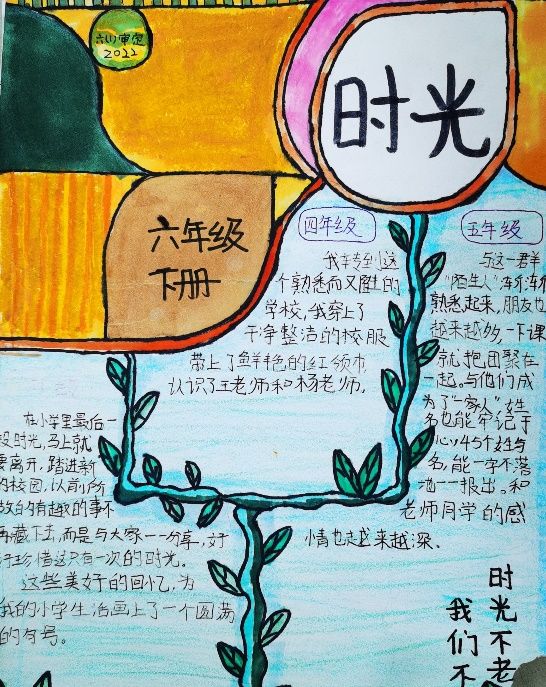 六(1)审定
2022
时光
六年级
下册
四年级
我转到这
个熟悉而又陌生的
学校,我穿上了
干净整洁的校服
带上了鲜艳的红领巾
认识了王老师和杨老师。
五年级
与这一群
“陌生人”渐渐
熟悉起来,朋友也
越来越多,一下课
就把团聚在
一起。与他们成
为了“家人”姓
名也能牢记于
心,45个姓与
名,能一字不落
地一一报出。和
老师同学的感
情也越来越深。
在小学里最后一
段时光,马上就
要离开,踏进新
的校园,以前所
做的有趣的事不
再藏下去,而是与大家一一分享,好
好珍惜这只有一次的时光。
这些美好的回忆,为
我的小学生活画上了一个圆满
的句号。
时光不老
我们不